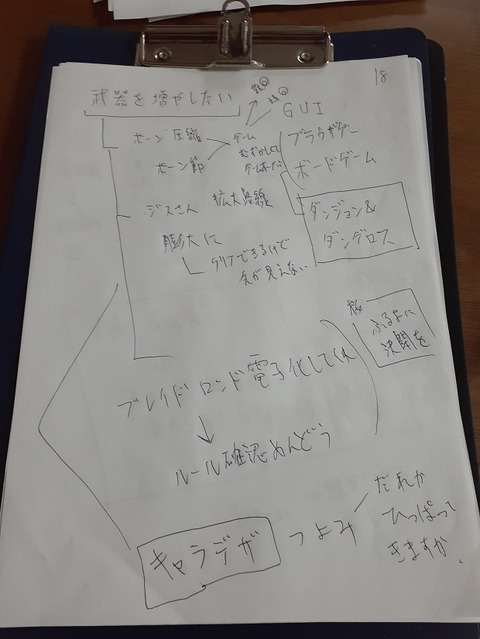 18
武器を増やしたい
GUI
ボーン圧縮
ゲーム
ブラウザゲー
ボーン節
ボードゲーム
ジスさん 拡大路線
ダンジョン&
ダングロス
膨大に
クリアできるけで
先が見えない
ふるよに
決闘を
ブレイドロンド電子化してくん
↓
ルール確認めんどう
キャラデザ つよみ
だれか
ひっぱって
きますか